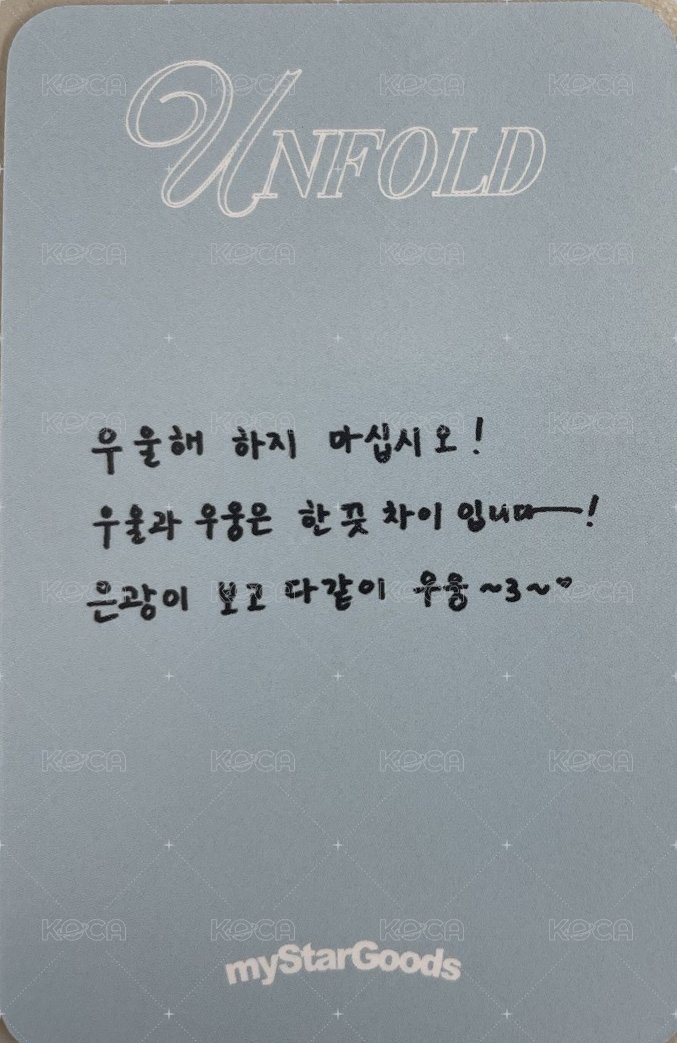 UNFOLD
우울해 하지 마십시오!
우울과 우웅은 한 끗 차이 입니다—!
은광이 보고 다같이 우웅~3~♡
myStarGoods
KOCA